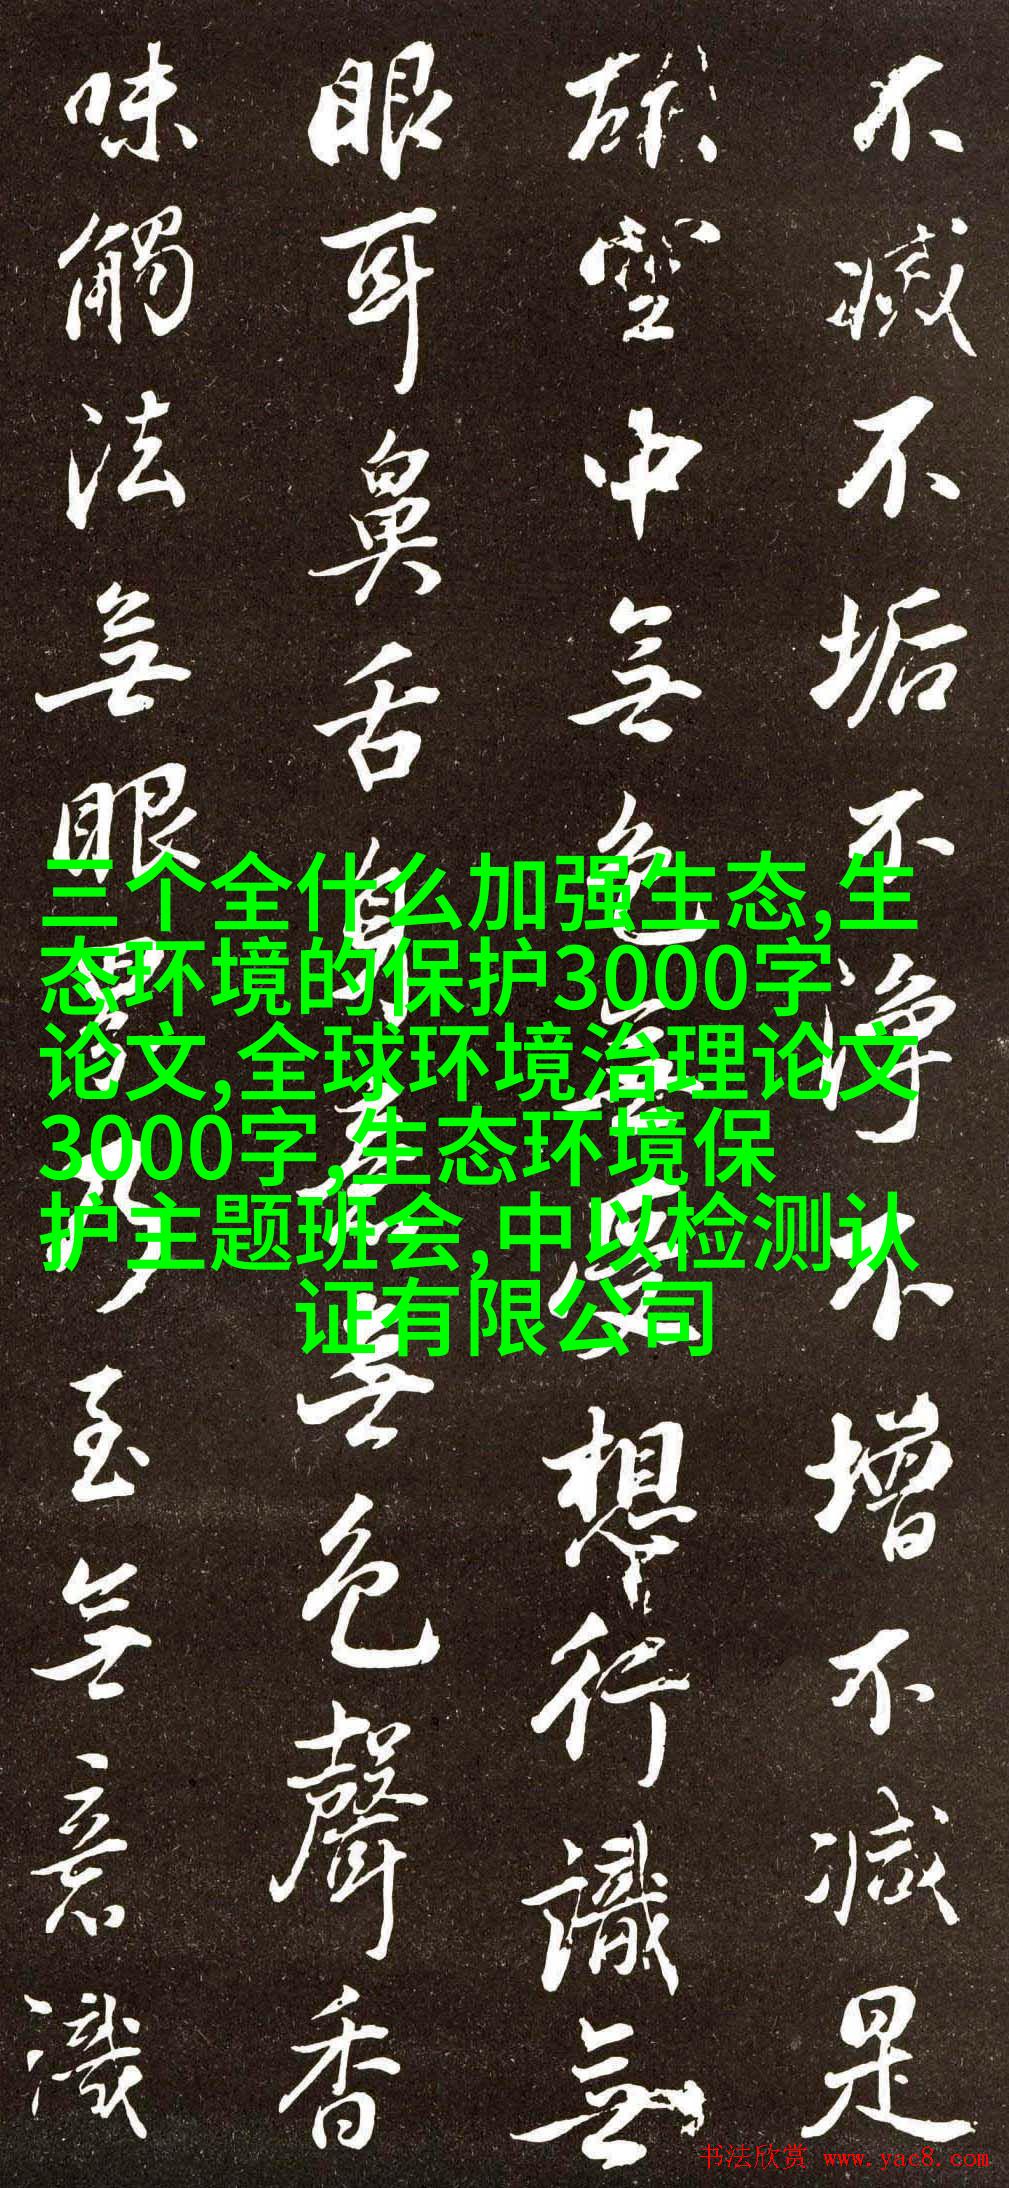 不滅不垢不淨不增不減是
故空中無色無受想行識無
眼耳鼻舌身意無色聲香
味觸法無眼界乃至無意識
三个全什么加强生态,生
态环境的保护3000字
论文,全球环境治理论文
3000字,生态环境保
护主题班会,中以检测认
证有限公司
书法欣赏 www.yac8.com